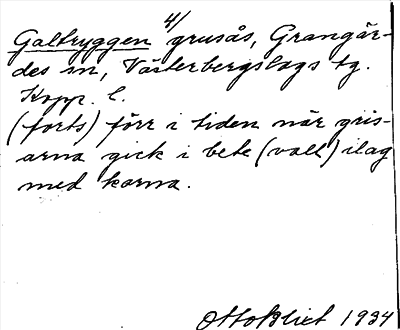 4/
Galtryggen grusås, Grangär-
des sn, Västerbergslags tg.
Kopp. l.
(forts) förr i tiden när gris-
arna gick i bete (vall) ilag
med korna.
Otto Blixt 1934